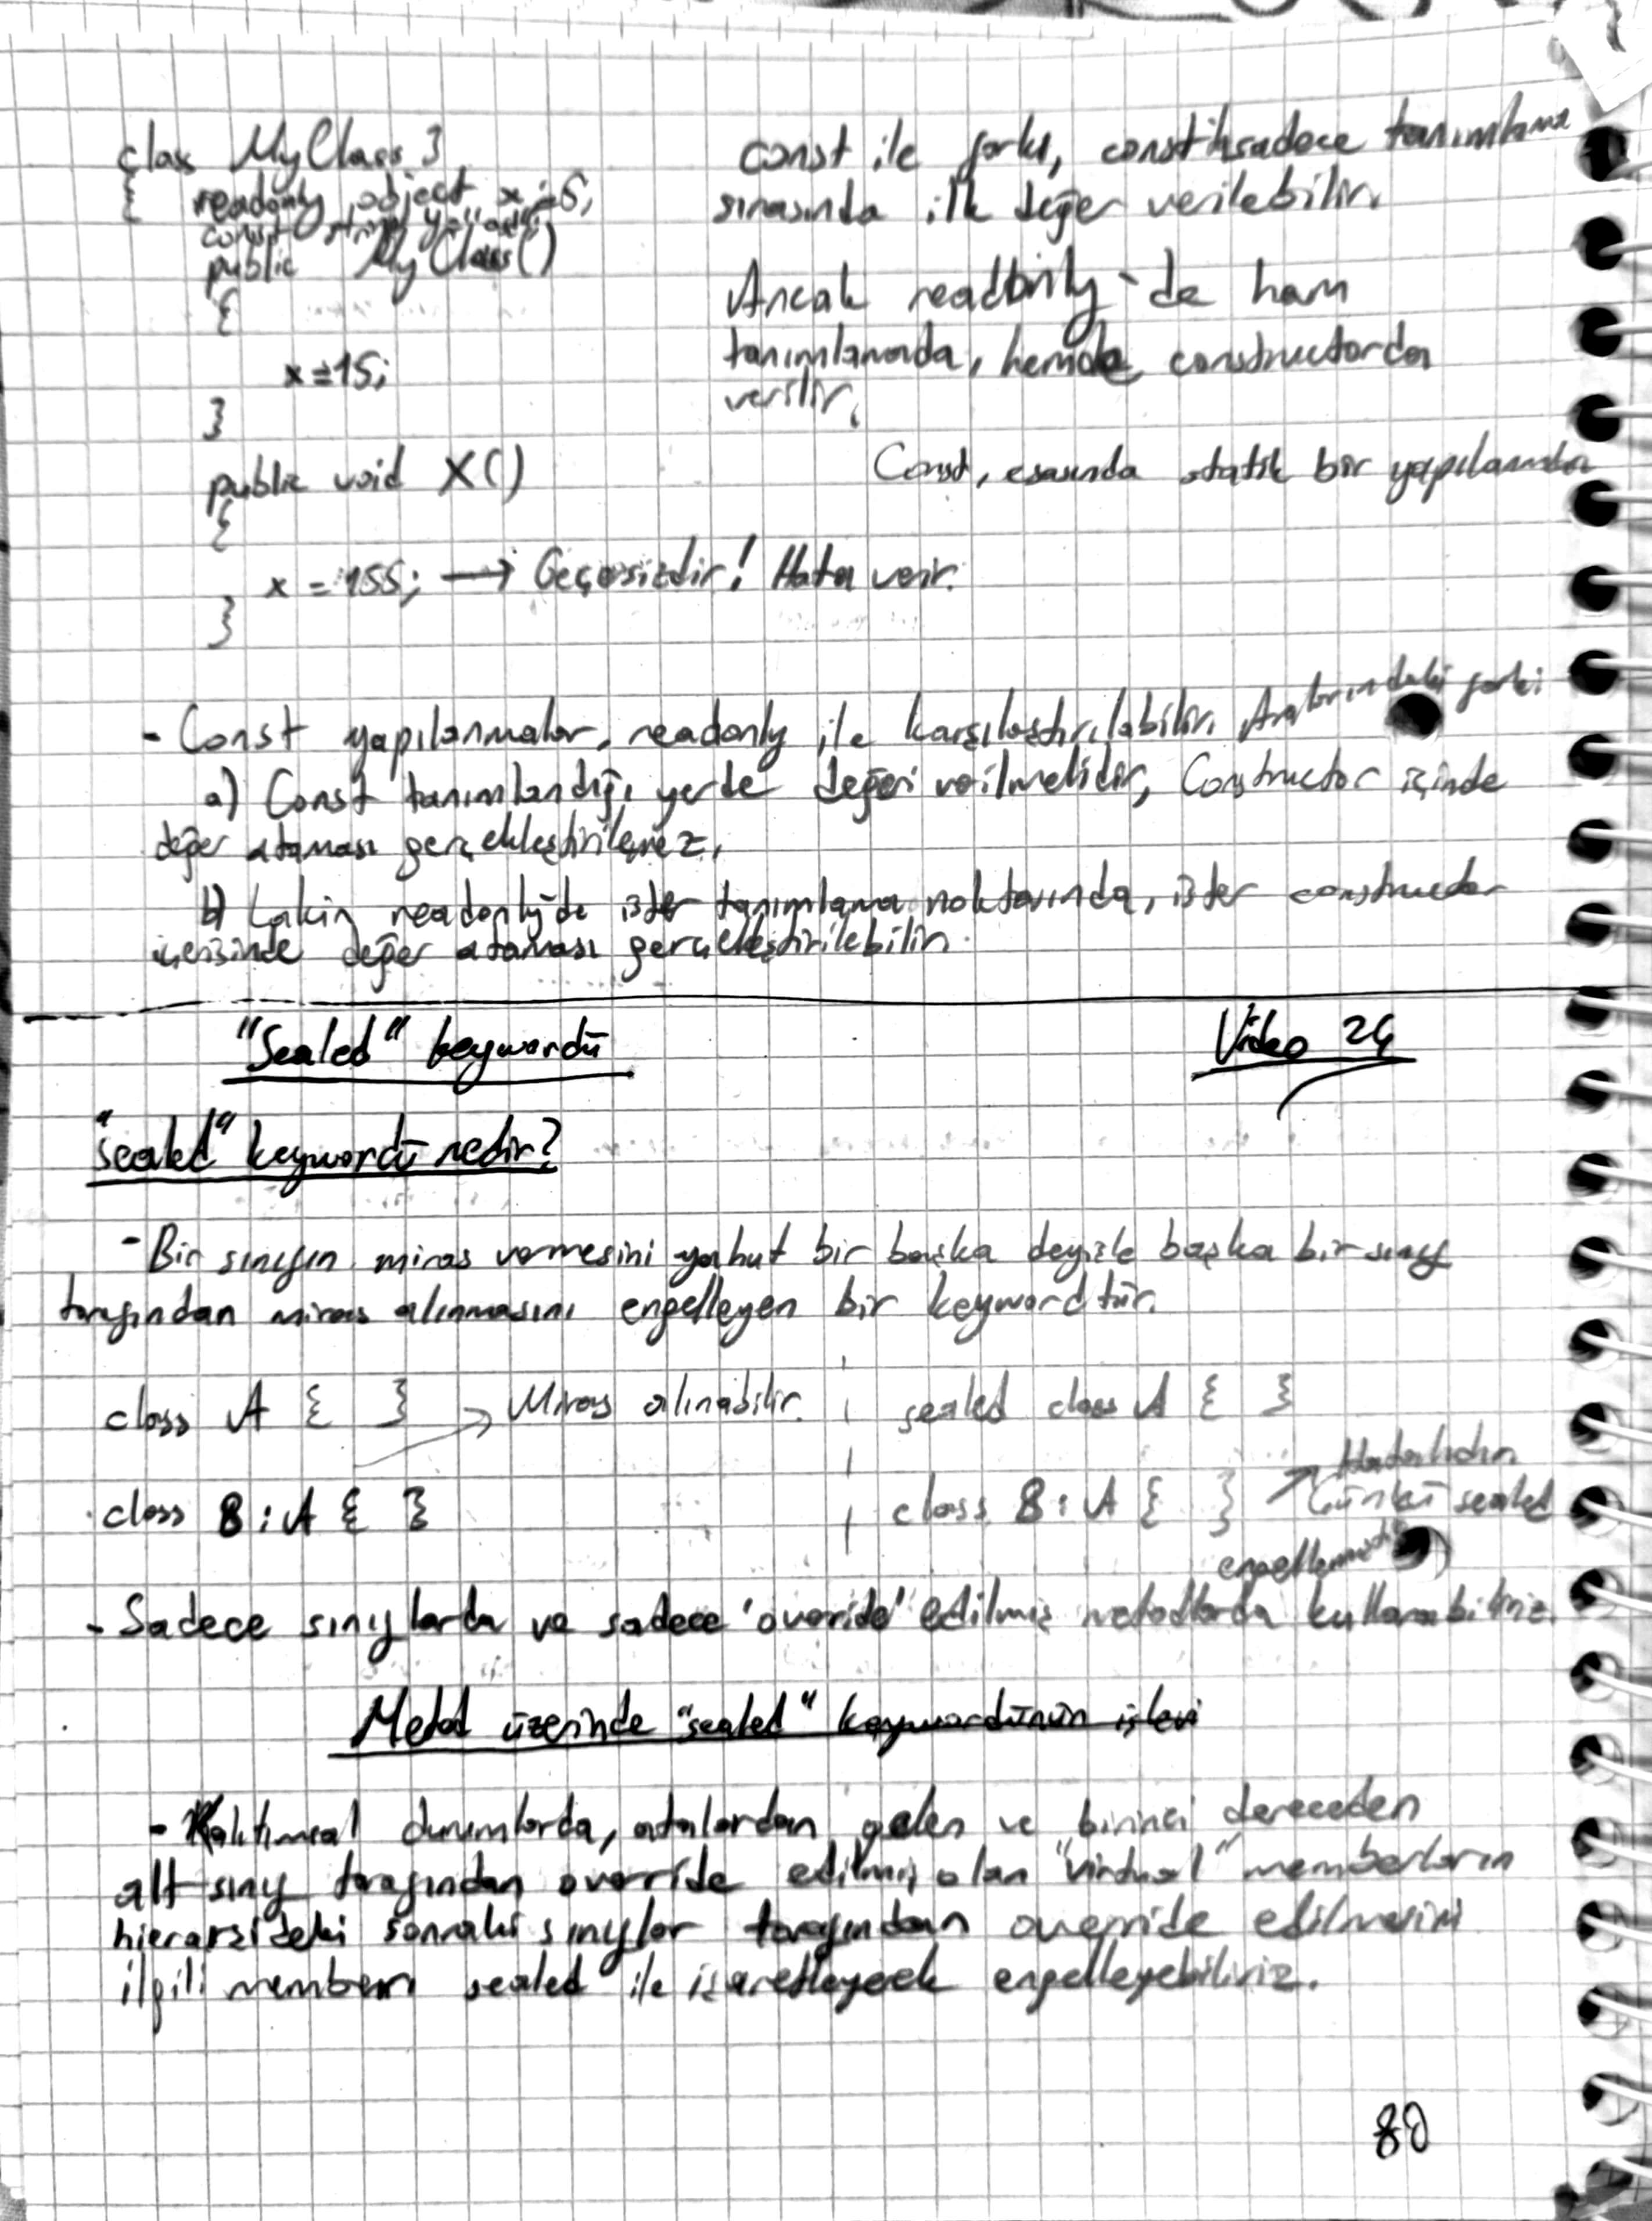 class MyClass3
{ readonly object x = 5;
const string y = "
public MyClass()
{
x = 15;
}
public void X()
{
x = 155; → Geçersizdir! Hata verir.
}
const ile farkı, const'ta sadece tanımlama
sırasında ilk değer verilebilir.
Ancak readonly'de hem
tanımlamada, hemde constructorda
verilir.
Const, esasında statik bir yapılanmadır
- Const yapılanmalar, readonly ile karşılaştırılabilir. Aralarındaki farkı
a) Const tanımlandığı yerde değeri verilmelidir, Constructor içinde
değer ataması gerçekleştirilemez.
b) Lakin readonly'de ister tanımlama noktasında, ister constructor
içerisinde değer ataması gerçekleştirilebilir.
"Sealed" keywordü
Video 24
"sealed" keywordü nedir?
- Bir sınıfın miras vermesini yahut bir başka deyişle başka bir sınıf
tarafından miras alınmasını engelleyen bir keywordtür.
class A { } → Miras alınabilir.
class B : A { }
sealed class A { }
class B : A { } → Hatalıdır
Çünkü sealed
- Sadece sınıflarda ve sadece 'override' edilmiş metodlarda kullanabiliriz.
Metod üzerinde "sealed" keywordünün işlevi
- Kalıtımsal durumlarda, atalardan gelen ve birinci dereceden
alt sınıf tarafından override edilmiş olan "virtual" memberların
hierarşideki sonraki sınıflar tarafından override edilmesini
ilgili memberı sealed ile işaretleyerek engelleyebiliriz.
80